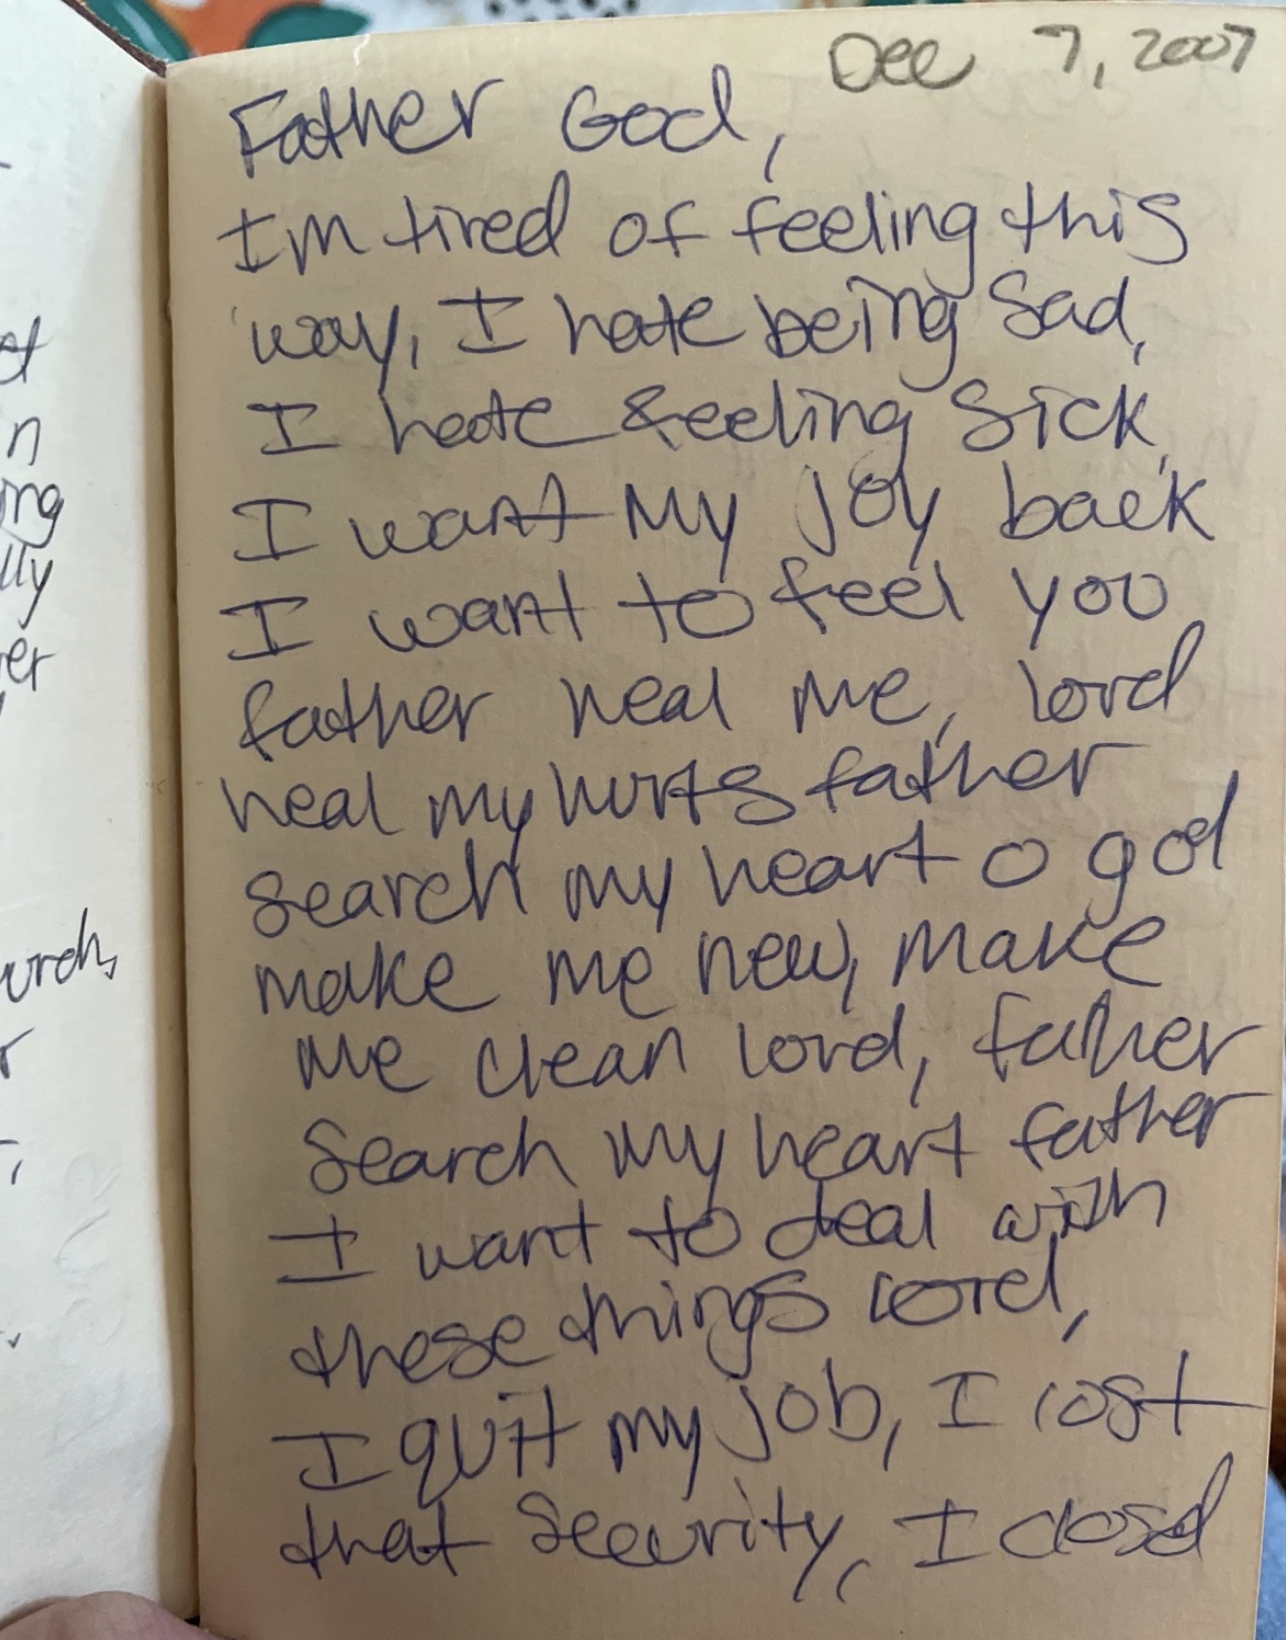 Dec 7, 2007
Father God,
I'm tired of feeling this
way, I hate being sad,
I hate feeling sick,
I want my joy back
I want to feel you
father heal me, lord
heal my hurts father
search my heart o god
make me new, make
me clean lord, father
search my heart father
I want to deal with
these things lord,
I quit my job, I lost
that security, I closed
n
ing
lly
er
urch,